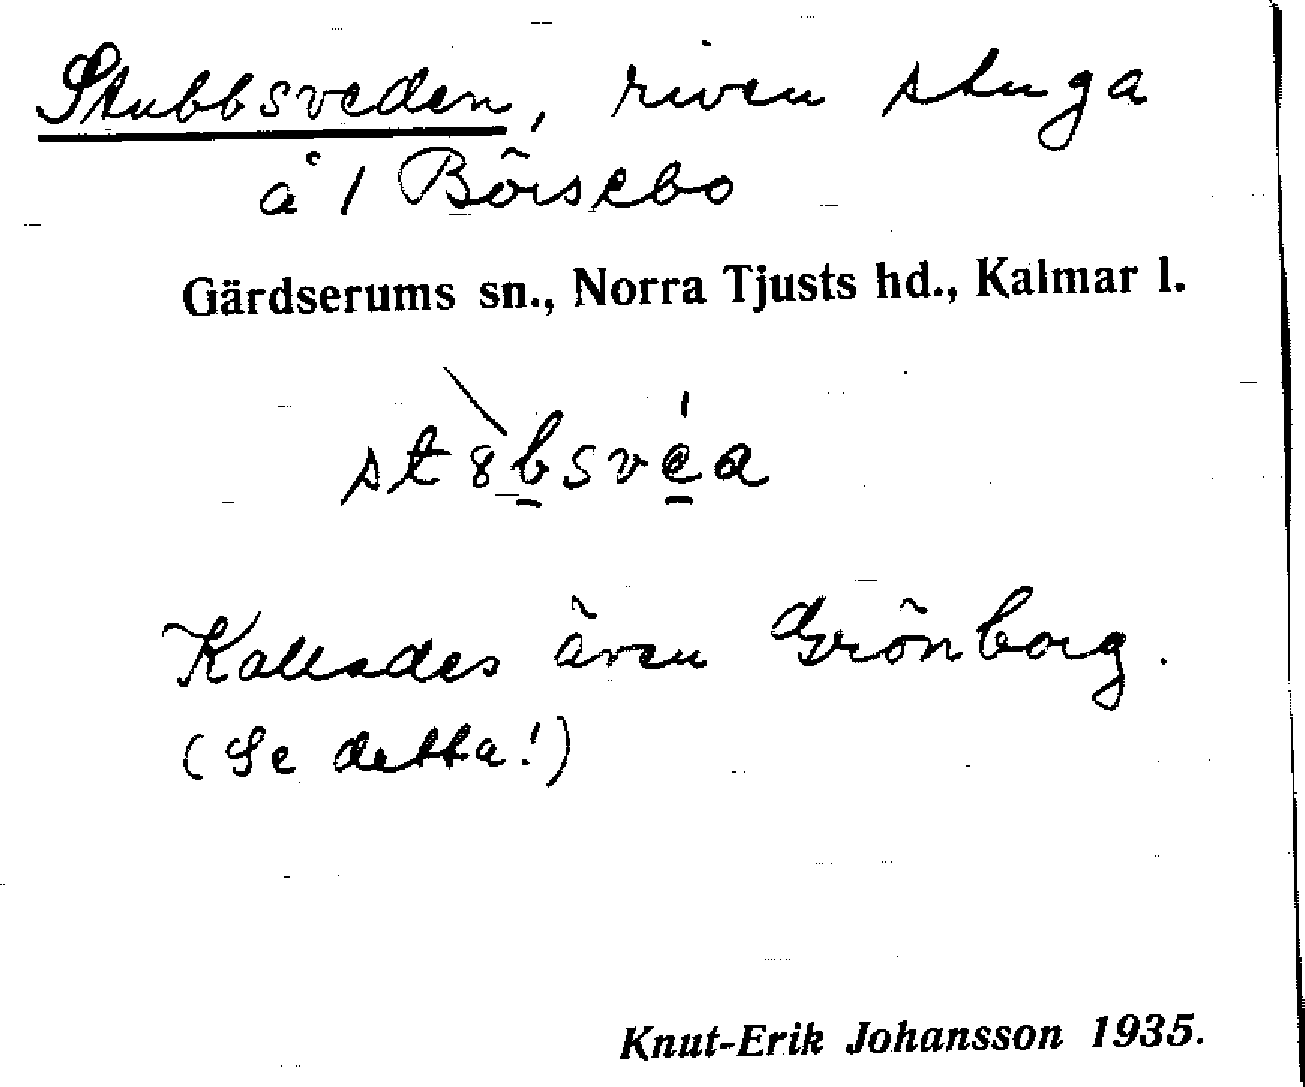 Stubbsveden, riven stuga
å 1 Börsebo
Gärdserums sn., Norra Tjusts hd., Kalmar l.
st8bsvéa
Kallades även Grönborg.
(Se detta!)
Knut-Erik Johansson 1935.